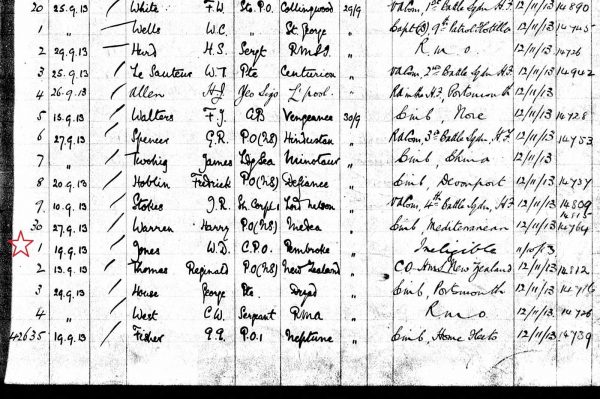 20 25.9.13 White F.W. Sto. P.O. Collingwood 29/9 12/11/13 14890
1 " Wells W.C. " St George " Capt (S) 9th Patrol Flotilla 12/11/13 14745
2 29.9.13 Hurd H.S. Sergt " R m o 12/11/13 14726
3 25.9.13 Le Sauteur W.T. Pte Centurion " 2nd Battle Sqdn H.F. 12/11/13 14942
4 26.9.13 Allen H.J. L'pool " H.F. Portsmouth 12/11/13
5 15.9.13 Walters F.J. AB Vengeance 30/9 Nore 12/11/13 14728
6 27.9.13 Spencer G.R. P.O (NS) Hindustan " 3rd Battle Sqdn, H.F. 12/11/13 14753
7 " Twohig James Ldg Sea Minotaur " China 12/11/13
8 20.9.13 Hoblin Fredrick P.O (NS) Defiance " Devonport 12/11/13 14737
9 10.9.13 Stokes J.R. Lord Nelson " 4th Battle Sqdn, H.F. 12/11/13 14809
30 27.9.13 Warren Harry P.O (NS) Medea " Mediterranean 12/11/13 14764
1 19.9.13 Jones W.D. C.P.O. Pembroke " Ineligible
2 13.9.13 Thomas Reginald P.O (NS) New Zealand " C.O. H.M.S. New Zealand 12/11/13 14812
3 29.9.13 House George Pte Dryad " Portsmouth 12/11/13 14716
4 " West C.W. Sergeant RMA " R m o 12/11/13 14726
42635 19.9.13 Fisher P.O.1 Neptune " Home Fleets 12/11/13 14739